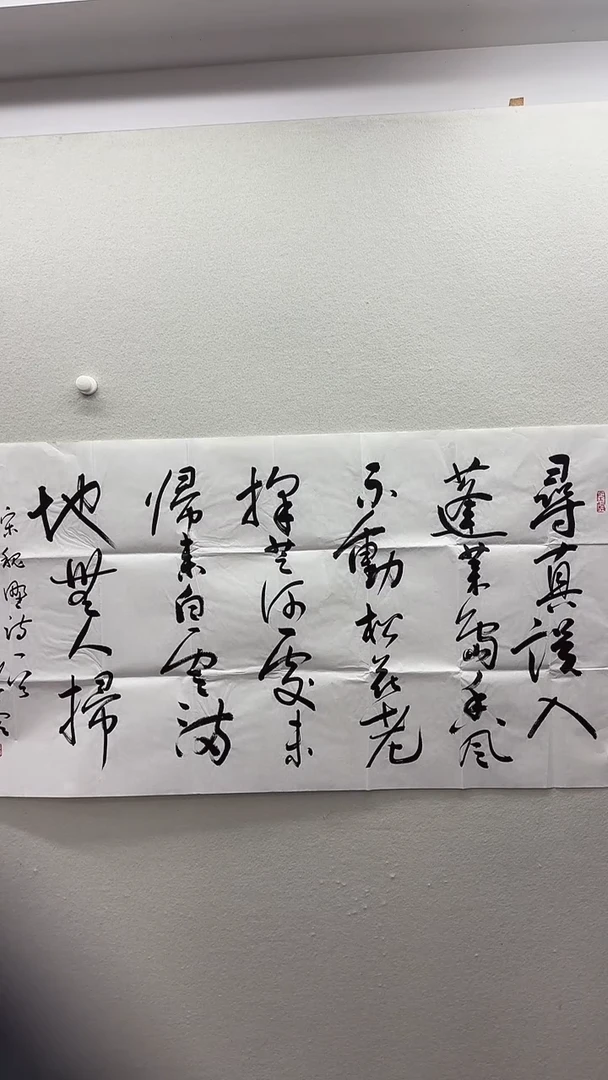 尋真誤入
蓬萊島香風
不動松花老
採芝何處未
歸來白雲滿
地無人掃
宋魏野詩一首